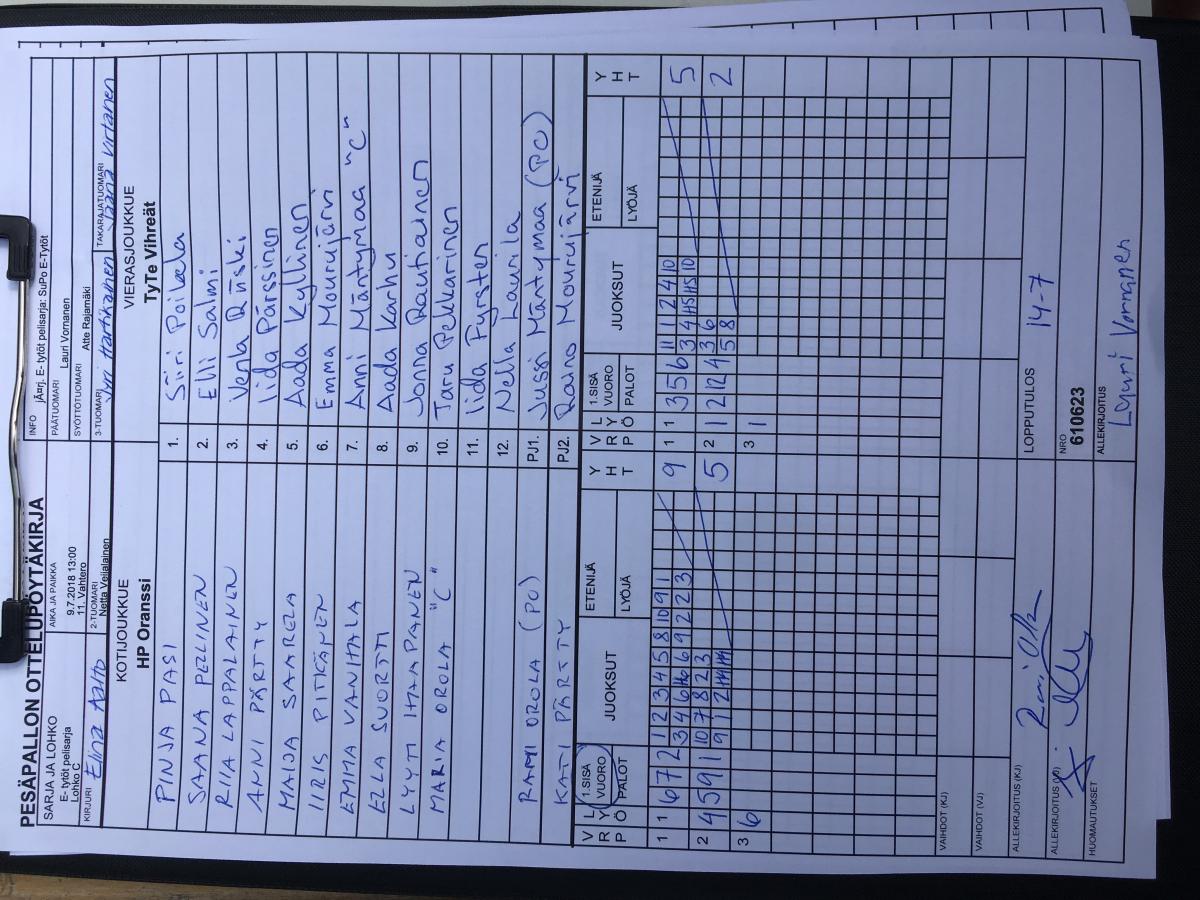 PESÄPALLON OTTELUPÖYTÄKIRJA
SARJA JA LOHKO
E- tytöt pelisarja
Lohko C
AIKA JA PAIKKA
9.7.2018 13:00
11. Vahtero
INFO
jÃ¤rj. E- tytöt pelisarja: SuPo E-Tytöt
PÄÄTUOMARI
Lauri Vornanen
SYÖTTÖTUOMARI
Atte Rajamäki
KIRJURI Elina Aalto
2-TUOMARI
Netta Veijalainen
3-TUOMARI
Jyri Hartikainen
TAKARAJATUOMARI
Jaana Virtanen
KOTIJOUKKUE
HP Oranssi
VIERASJOUKKUE
TyTe Vihreät
PINJA PASI 1. Siiri Poikela
SAANA PELLINEN 2. Elli Salmi
RIIA LAPPALAINEN 3. Venla Ränski
ANNI PÄRTTY 4. Iida Pärssinen
MAIJA SAARELA 5. Aada Kyllinen
IIRIS PITKÄNEN 6. Emma Mourujärvi
EMMA VANHALA 7. Anni Mäntymaa "C"
ELLA SUORTTI 8. Aada Karhu
LYYTI IHAPPANEN 9. Jonna Rautiainen
MARIA OROLA "C" 10. Taru Pekkarinen
11. Iida Fyrsten
12. Nella Laurila
RAMI OROLA (PO) PJ1. Jussi Mäntymaa (PO)
KATI PÄRTTY PJ2. Raino Mourujärvi
V R P L Y Ö 1.SISÄ VUORO PALOT JUOKSUT ETENIJÄ LYÖJÄ Y H T V R P L Y Ö 1.SISÄ VUORO PALOT JUOKSUT ETENIJÄ LYÖJÄ Y H T
1 1 6 7 2 1 2 3 4 5 8 10 9 1 9 1 1 3 5 6 11 1 2 4 10 5
2 4 5 9 1 10 7 8 2 3 5 2 1 2 12 4 3 6 2
3 6 3 1
VAIHDOT (KJ)
VAIHDOT (VJ)
ALLEKIRJOITUS (KJ)
LOPPUTULOS
14-7
ALLEKIRJOITUS (VJ)
NRO
610623
HUOMAUTUKSET
ALLEKIRJOITUS
Lauri Vornanen